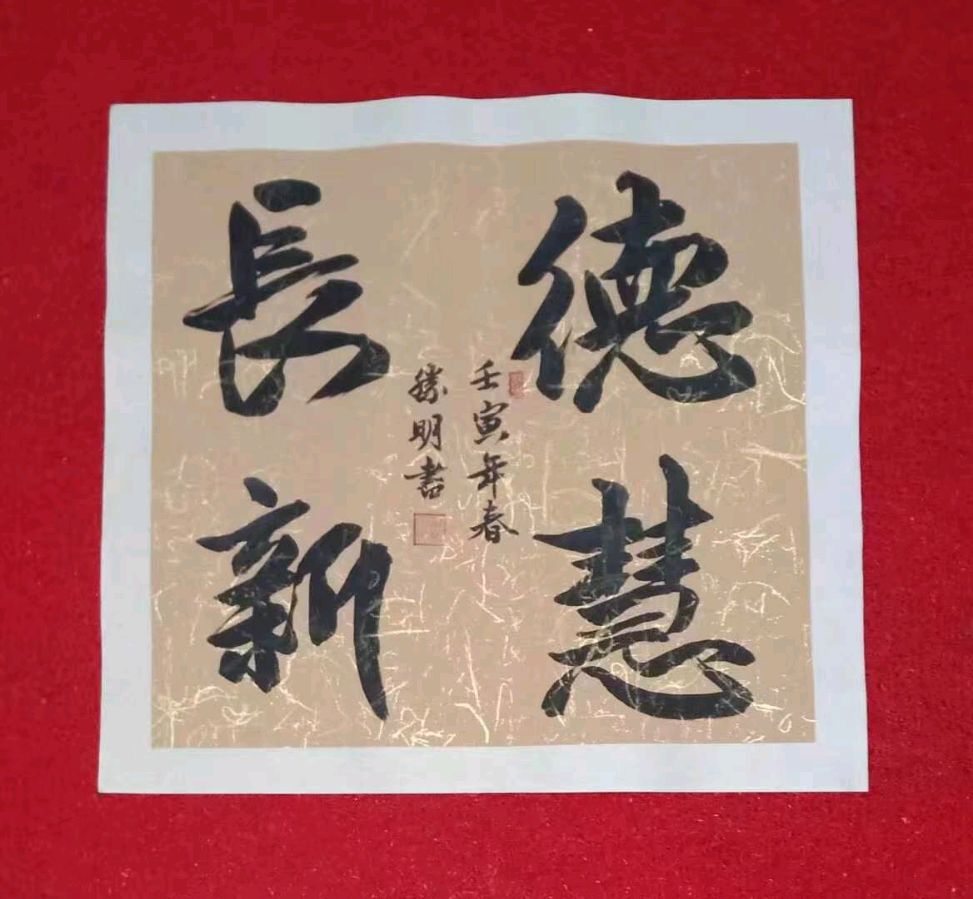 德慧
長新
壬寅年春
勝明書